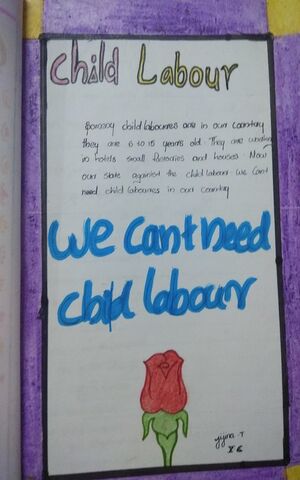 Child Labour
child laboures are in our country
they are 6 to 15 years old. They are workin
in hotels small factories and houses. Now
our state against the child labour we cant
need child laboures in our country
We cant need
child labour
T
X E